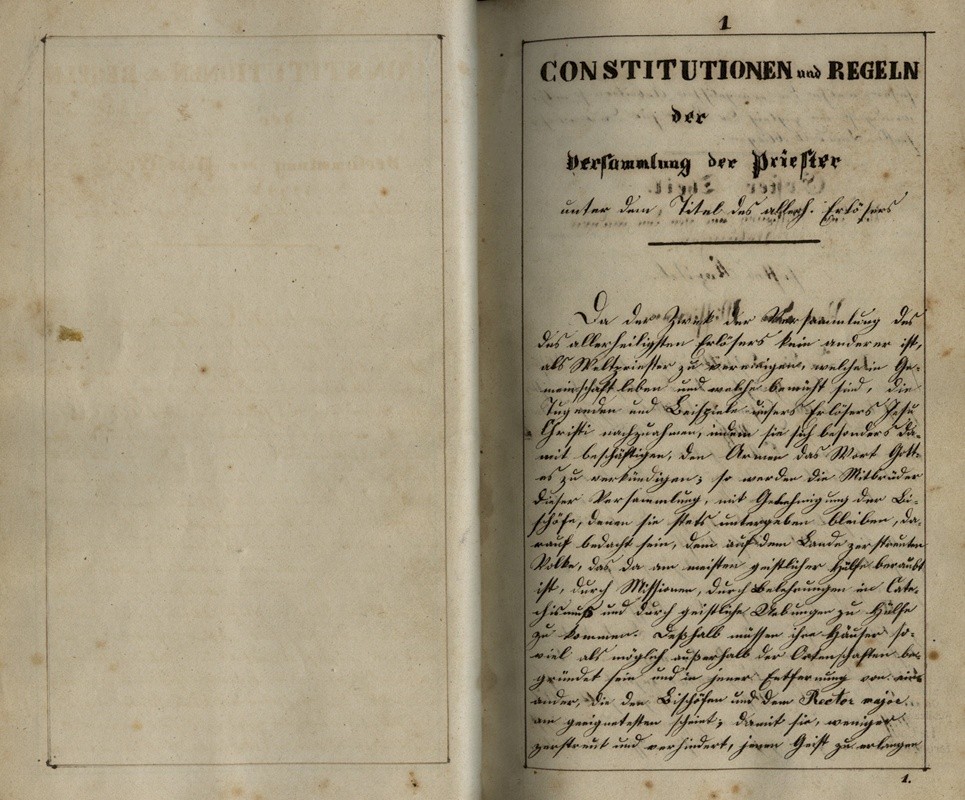 1
CONSTITUTIONEN und REGELN
der
Versammlung der Priester
unter dem Titel des allerh. Erlösers
Da der Zweck der Versammlung des
des allerheiligsten Erlösers kein anderer ist,
als Weltpriester zu vereinigen, welche in Ge-
meinschaft leben und welche bemüht sind, die
Tugenden und Beispiele unsers Erlösers Jesu
Christi nachzuahmen, indem sie sich besonders da-
mit beschäftigen, den Armen das Wort Gott-
es zu verkündigen; so werden die Mitbrüder
dieser Versammlung, mit Genehmigung der Bi-
schöfe, denen sie stets untergeben bleiben, da-
rauf bedacht sein, dem auf dem Lande zerstreuten
Volke, das da am meisten geistlicher Hülfe beraubt
ist, durch Missionen, durch Belehrungen im Cate-
chismuß und durch geistliche Uebungen zu Hülfe
zu kommen. Deßhalb müssen ihre Häuser so-
viel als möglich außerhalb der Ortschaften be-
gründet sein und in jener Entfernung von ein-
ander, die den Bischöfen und dem Rector major
am geeignetesten scheint; damit sie, weniger
zerstreut und verhindert, jenen Geist zu erlangen
1.